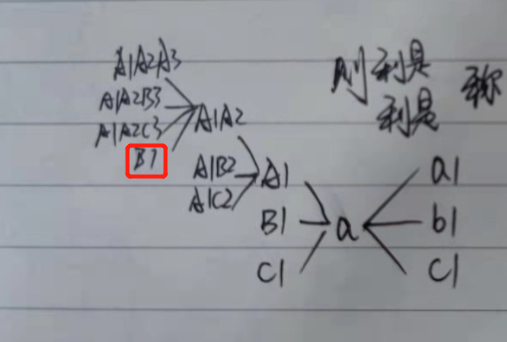 A1A2A3
A1A2B3
A1A2C3
B1
A1A2
A1B2
A1C2
A1
B1
C1
a
a1
b1
c1
利具
利是
称